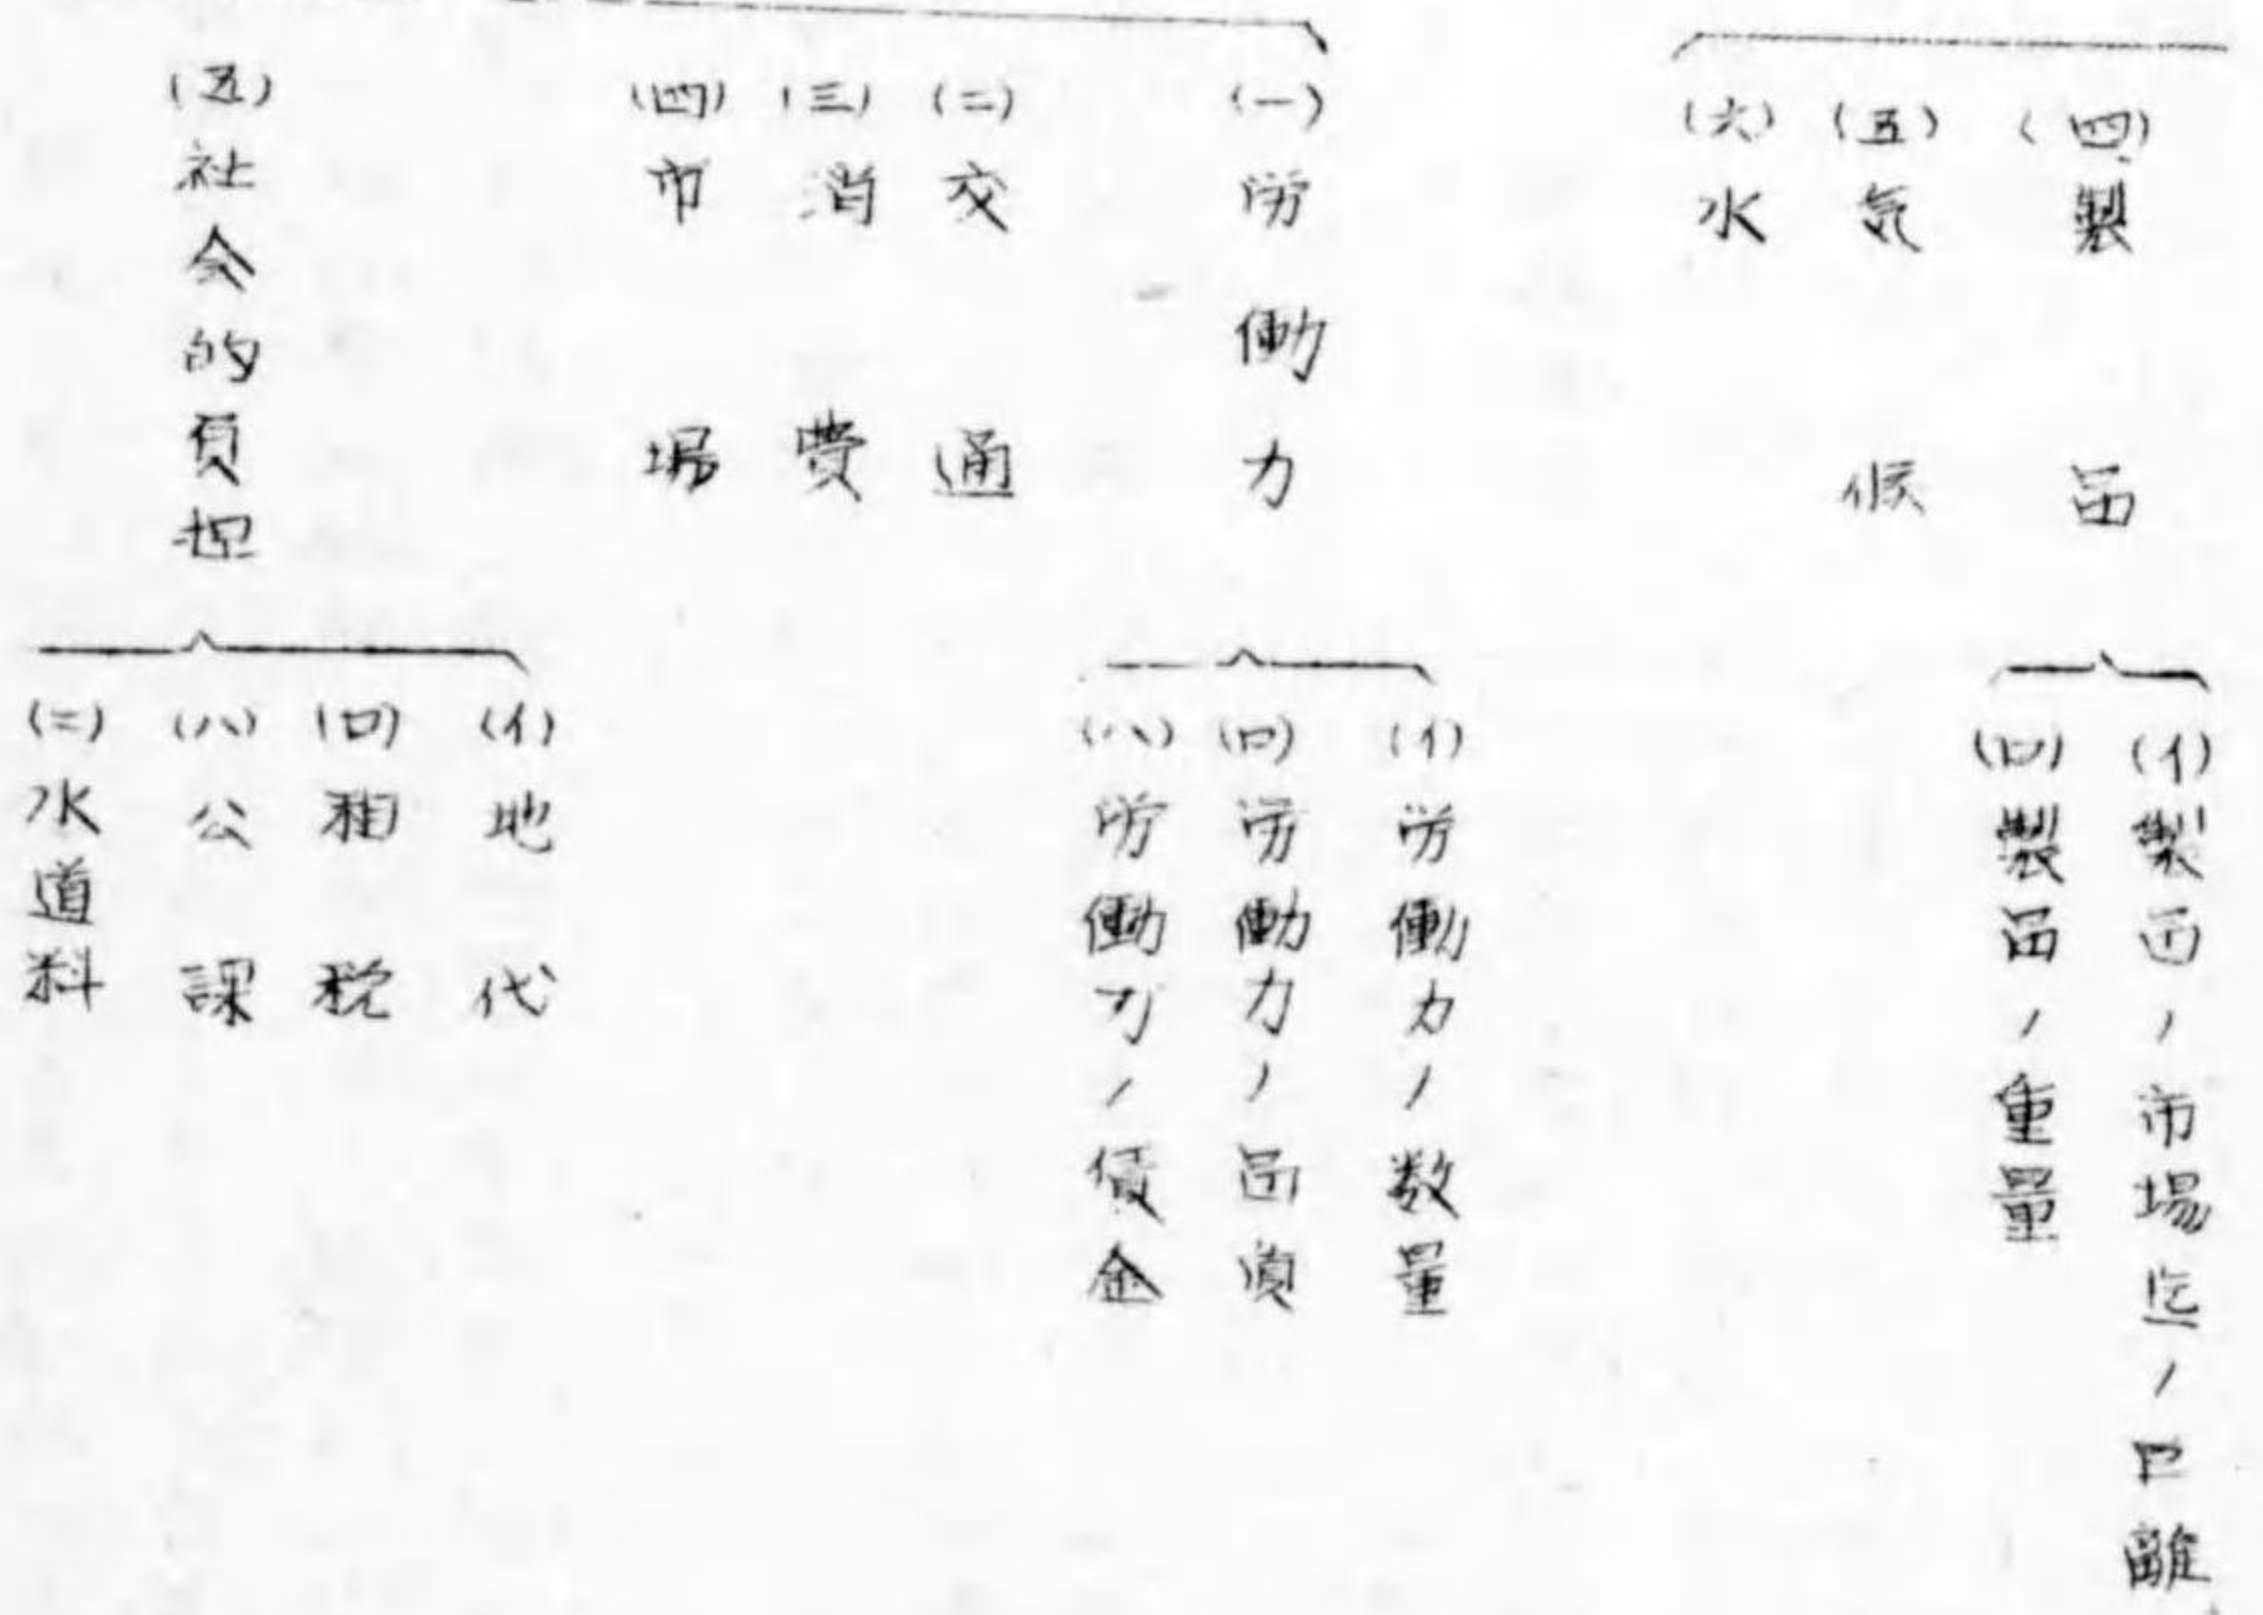 (四)製品
(イ)製品ノ市場迄ノ距離
(ロ)製品ノ重量
(五)気候
(六)水
(一)労働力
(イ)労働力ノ数量
(ロ)労働力ノ品質
(ハ)労働力ノ賃金
(二)交通
(三)消費
(四)市場
(五)社会的負担
(イ)地代
(ロ)租税
(ハ)公課
(ニ)水道料